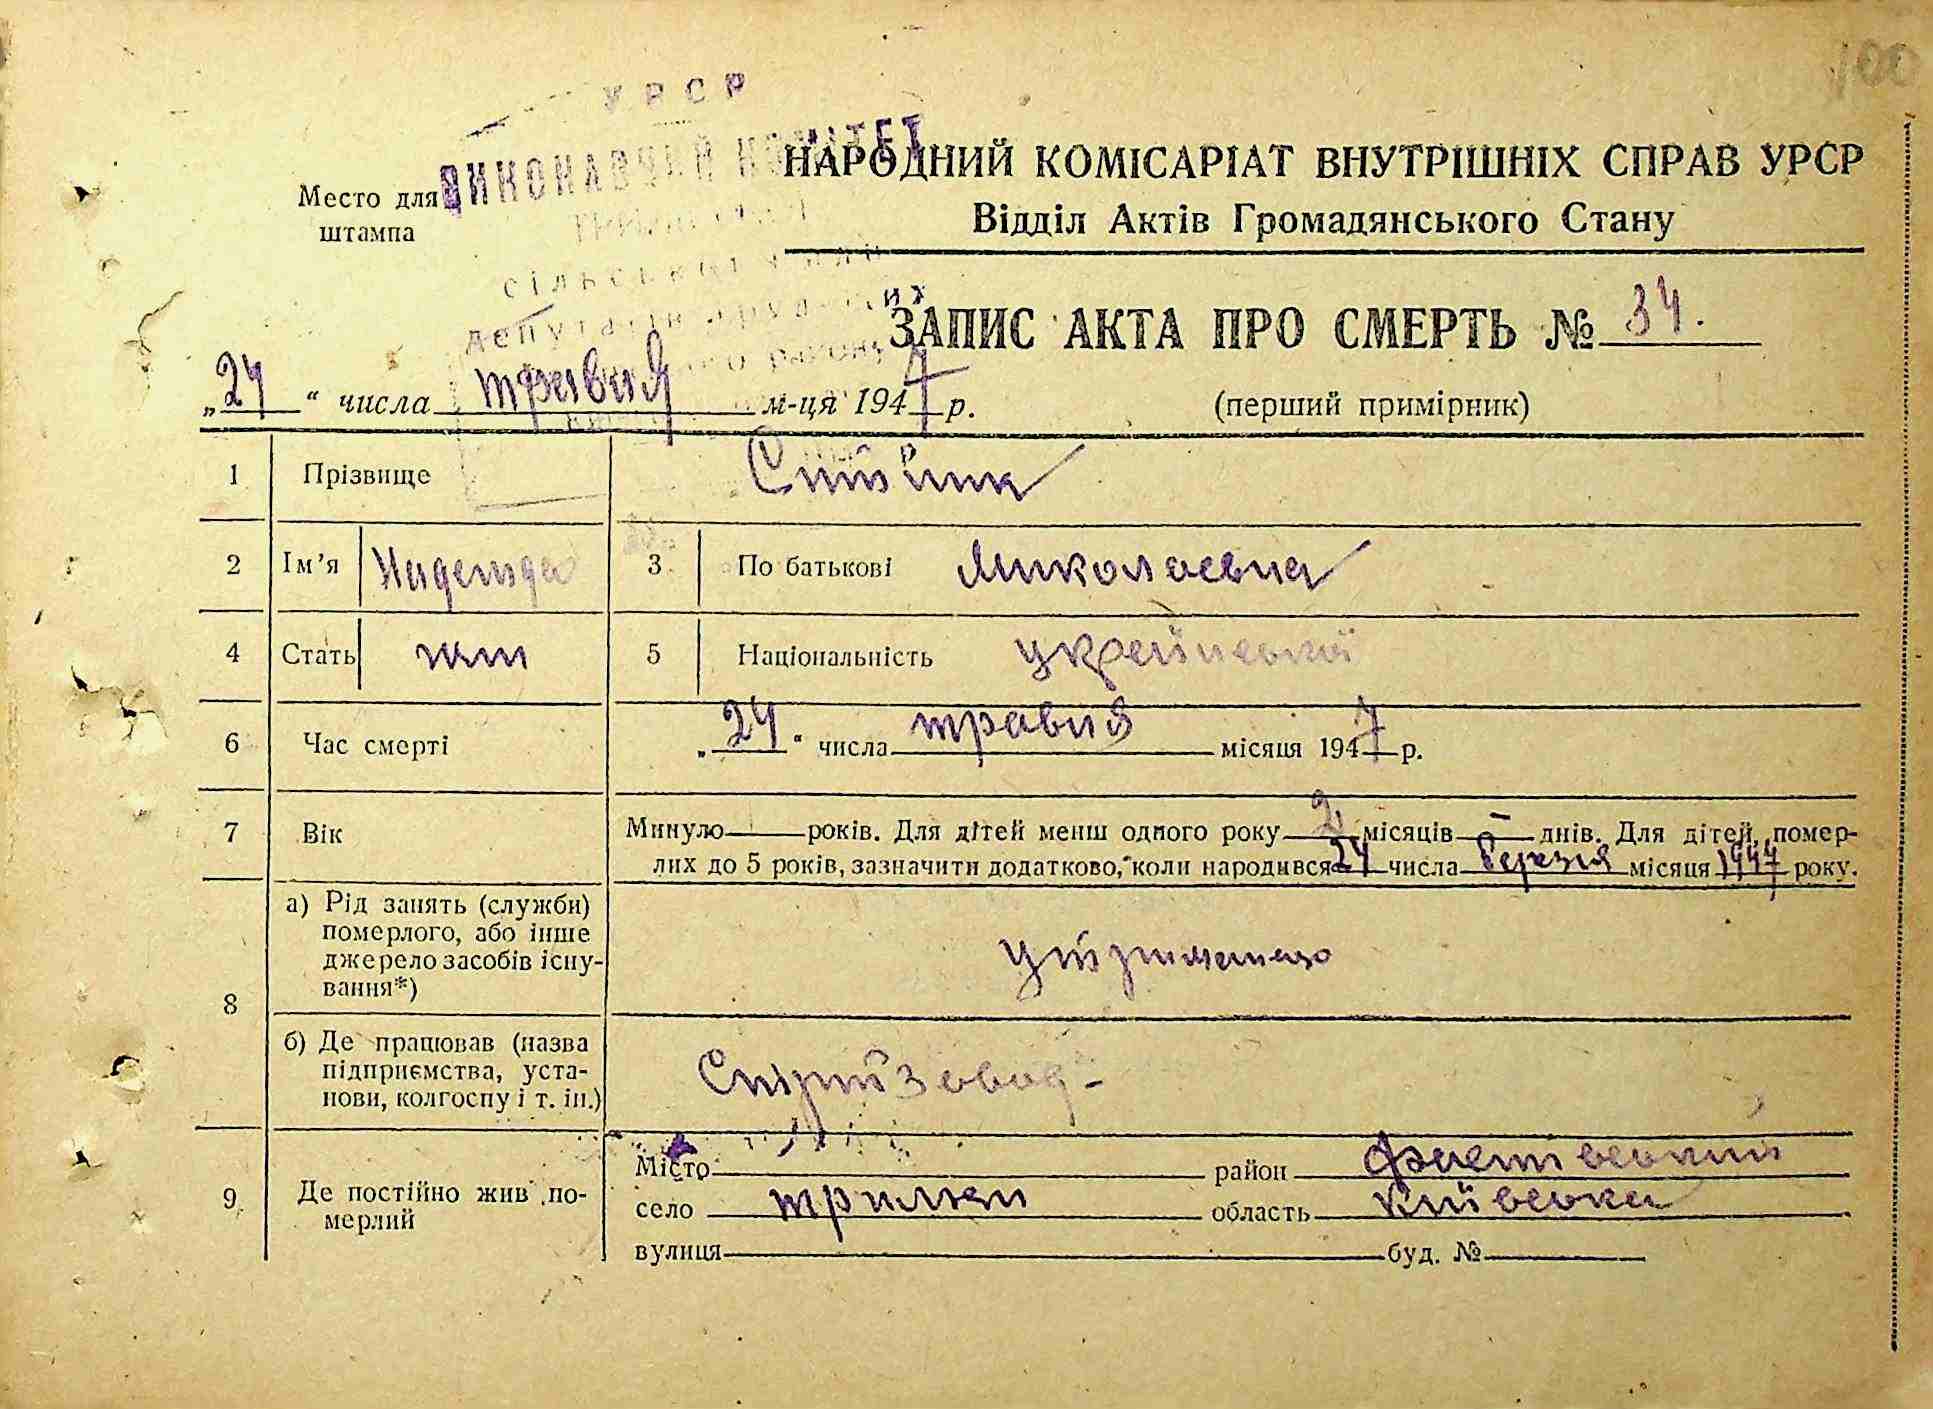 100
УРСР
ВИКОНАВЧИЙ КОМІТЕТ
сільської ради
депутатів трудящих
Место для штампа
НАРОДНИЙ КОМІСАРІАТ ВНУТРІШНІХ СПРАВ УРСР
Відділ Актів Громадянського Стану
ЗАПИС АКТА ПРО СМЕРТЬ № 34.
„24“ числа травня м-ця 1947 р. (перший примірник)
1 Прізвище Ситник
2 Ім'я Надежда 3 По батькові Миколаевна
4 Стать жін 5 Національність українській
6 Час смерті „24“ числа травня місяця 1947 р.
7 Вік Минуло — років. Для дітей менш одного року 2 місяців — днів. Для дітей, помер-
лих до 5 років, зазначити додатково, коли народився 24 числа березня місяця 1947 року.
8 а) Рід занять (служби) померлого, або інше джерело засобів існу-вання*) утриманец
б) Де працював (назва підприємства, уста-нови, колгоспу і т. ін.) Спіртзовод-
9 Де постійно жив по-мерлий
Місто район Фастівський
село трилеси область київська
вулиця буд. №